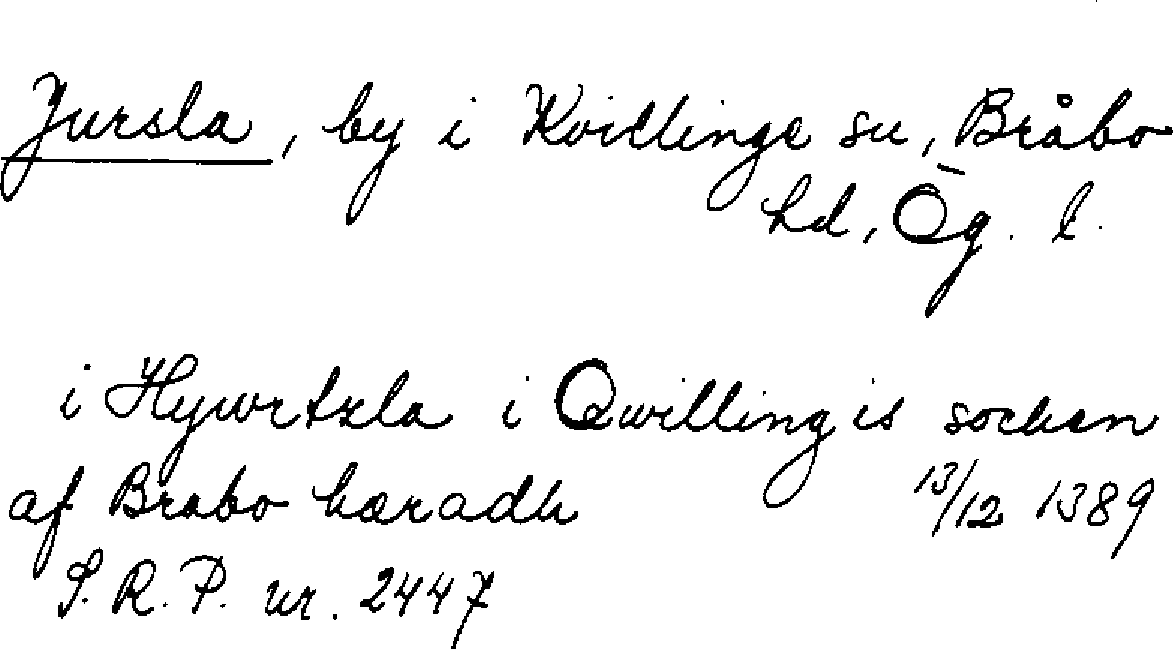 Jursla, by i Kvillinge sn, Bråbo
hd, Ög. l.
i Hywrtzla i Qwillingis socken
af Brabo hæradh 13/12 1389
S. R. P. nr. 2447